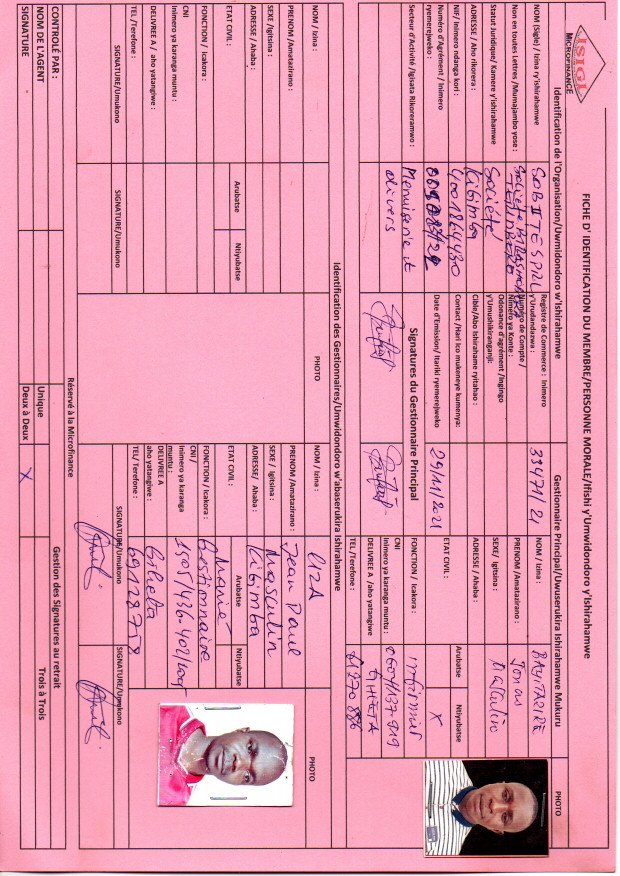 ISIGI
MICROFINANCE
FICHE D' IDENTIFICATION DU MEMBRE/PERSONNE MORALE/Ifishi y'Umwidondoro y'Ishirahamwe
Identification de l'Organisation/Uwmidondoro w'Ishirahamwe
Gestionnaire Principal/Uwuserukira Ishirahamwe Mukuru
PHOTO
NOM (Sigle) / Izina ry'ishirahamwe
Non en toutes Lettres /Mumajambo yose :
Société
Statut Juridique/ Kamere y'ishirahamwe
Société
ADRESSE / Aho rikorera :
Kibimba
NIF/ Inimero ndanga kori :
4001864430
Numéro d'Agrément / Inimero
ryemerejweko :
Secteur d'Activité /Igisata Rikoreramwo :
Menuiserie et
divers
Registre de Commerce : Inimero
y'Urudandazwa :
33471/21
Numéro de Compte /
Nimero ya Konte :
Odonance d'agrément /Ingingo
y'Umushikiranganji:
Cible/Abo Ishirahame ryitaho :
Contact /Hari Ico mukeneye kumenya:
Date d'Emission/ Itariki ryemerejweko
29/11/2021
Signatures du Gestionnaire Principal
NOM / Izina :
PRENOM /Amatazirano :
Jonas
SEXE/ Igitsina :
Masculin
ADRESSE / Ahaba :
ETAT CIVIL :
Arubatse
Ntiyubatse
X
FONCTION / Icakora :
Infirmier
CNI
Inimero ya karanga muntu :
DELIVREE A /aho yatangiwe :
GIHETA
TEL /Terefone :
Identification des Gestionnaires/Umwidondoro w'abaserukira ishirahamwe
NOM / Izina :
PRENOM /Amatazirano :
SEXE /Igitsina :
ADRESSE / Ahaba :
ETAT CIVIL :
Arubatse
Ntiyubatse
FONCTION / Icakora :
CNI
Inimero ya karanga muntu :
DELIVREE A / aho yatangiwe :
TEL /Terefone :
SIGNATURE/Umukono
SIGNATURE/Umukono
PHOTO
NOM / Izina :
LIZA
PRENOM /Amatazirano :
Jean Paul
SEXE / Igitsina :
Masculin
ADRESSE/ Ahaba :
Kibimba
ETAT CIVIL :
Arubatse
Ntiyubatse
Marié
FONCTION / Icakora :
Gestionnaire
CNI /
Inimero ya karanga
muntu :
DELIVREE A
aho yatangiwe :
Giheta
TEL/ Terefone :
SIGNATURE/Umukono
SIGNATURE/Umukono
PHOTO
Réservé à la Microfinance
CONTROLÉ PAR :
NOM DE L'AGENT
SIGNATURE
Gestion des Signatures au retrait
Unique
Deux à Deux
X
Trois à Trois